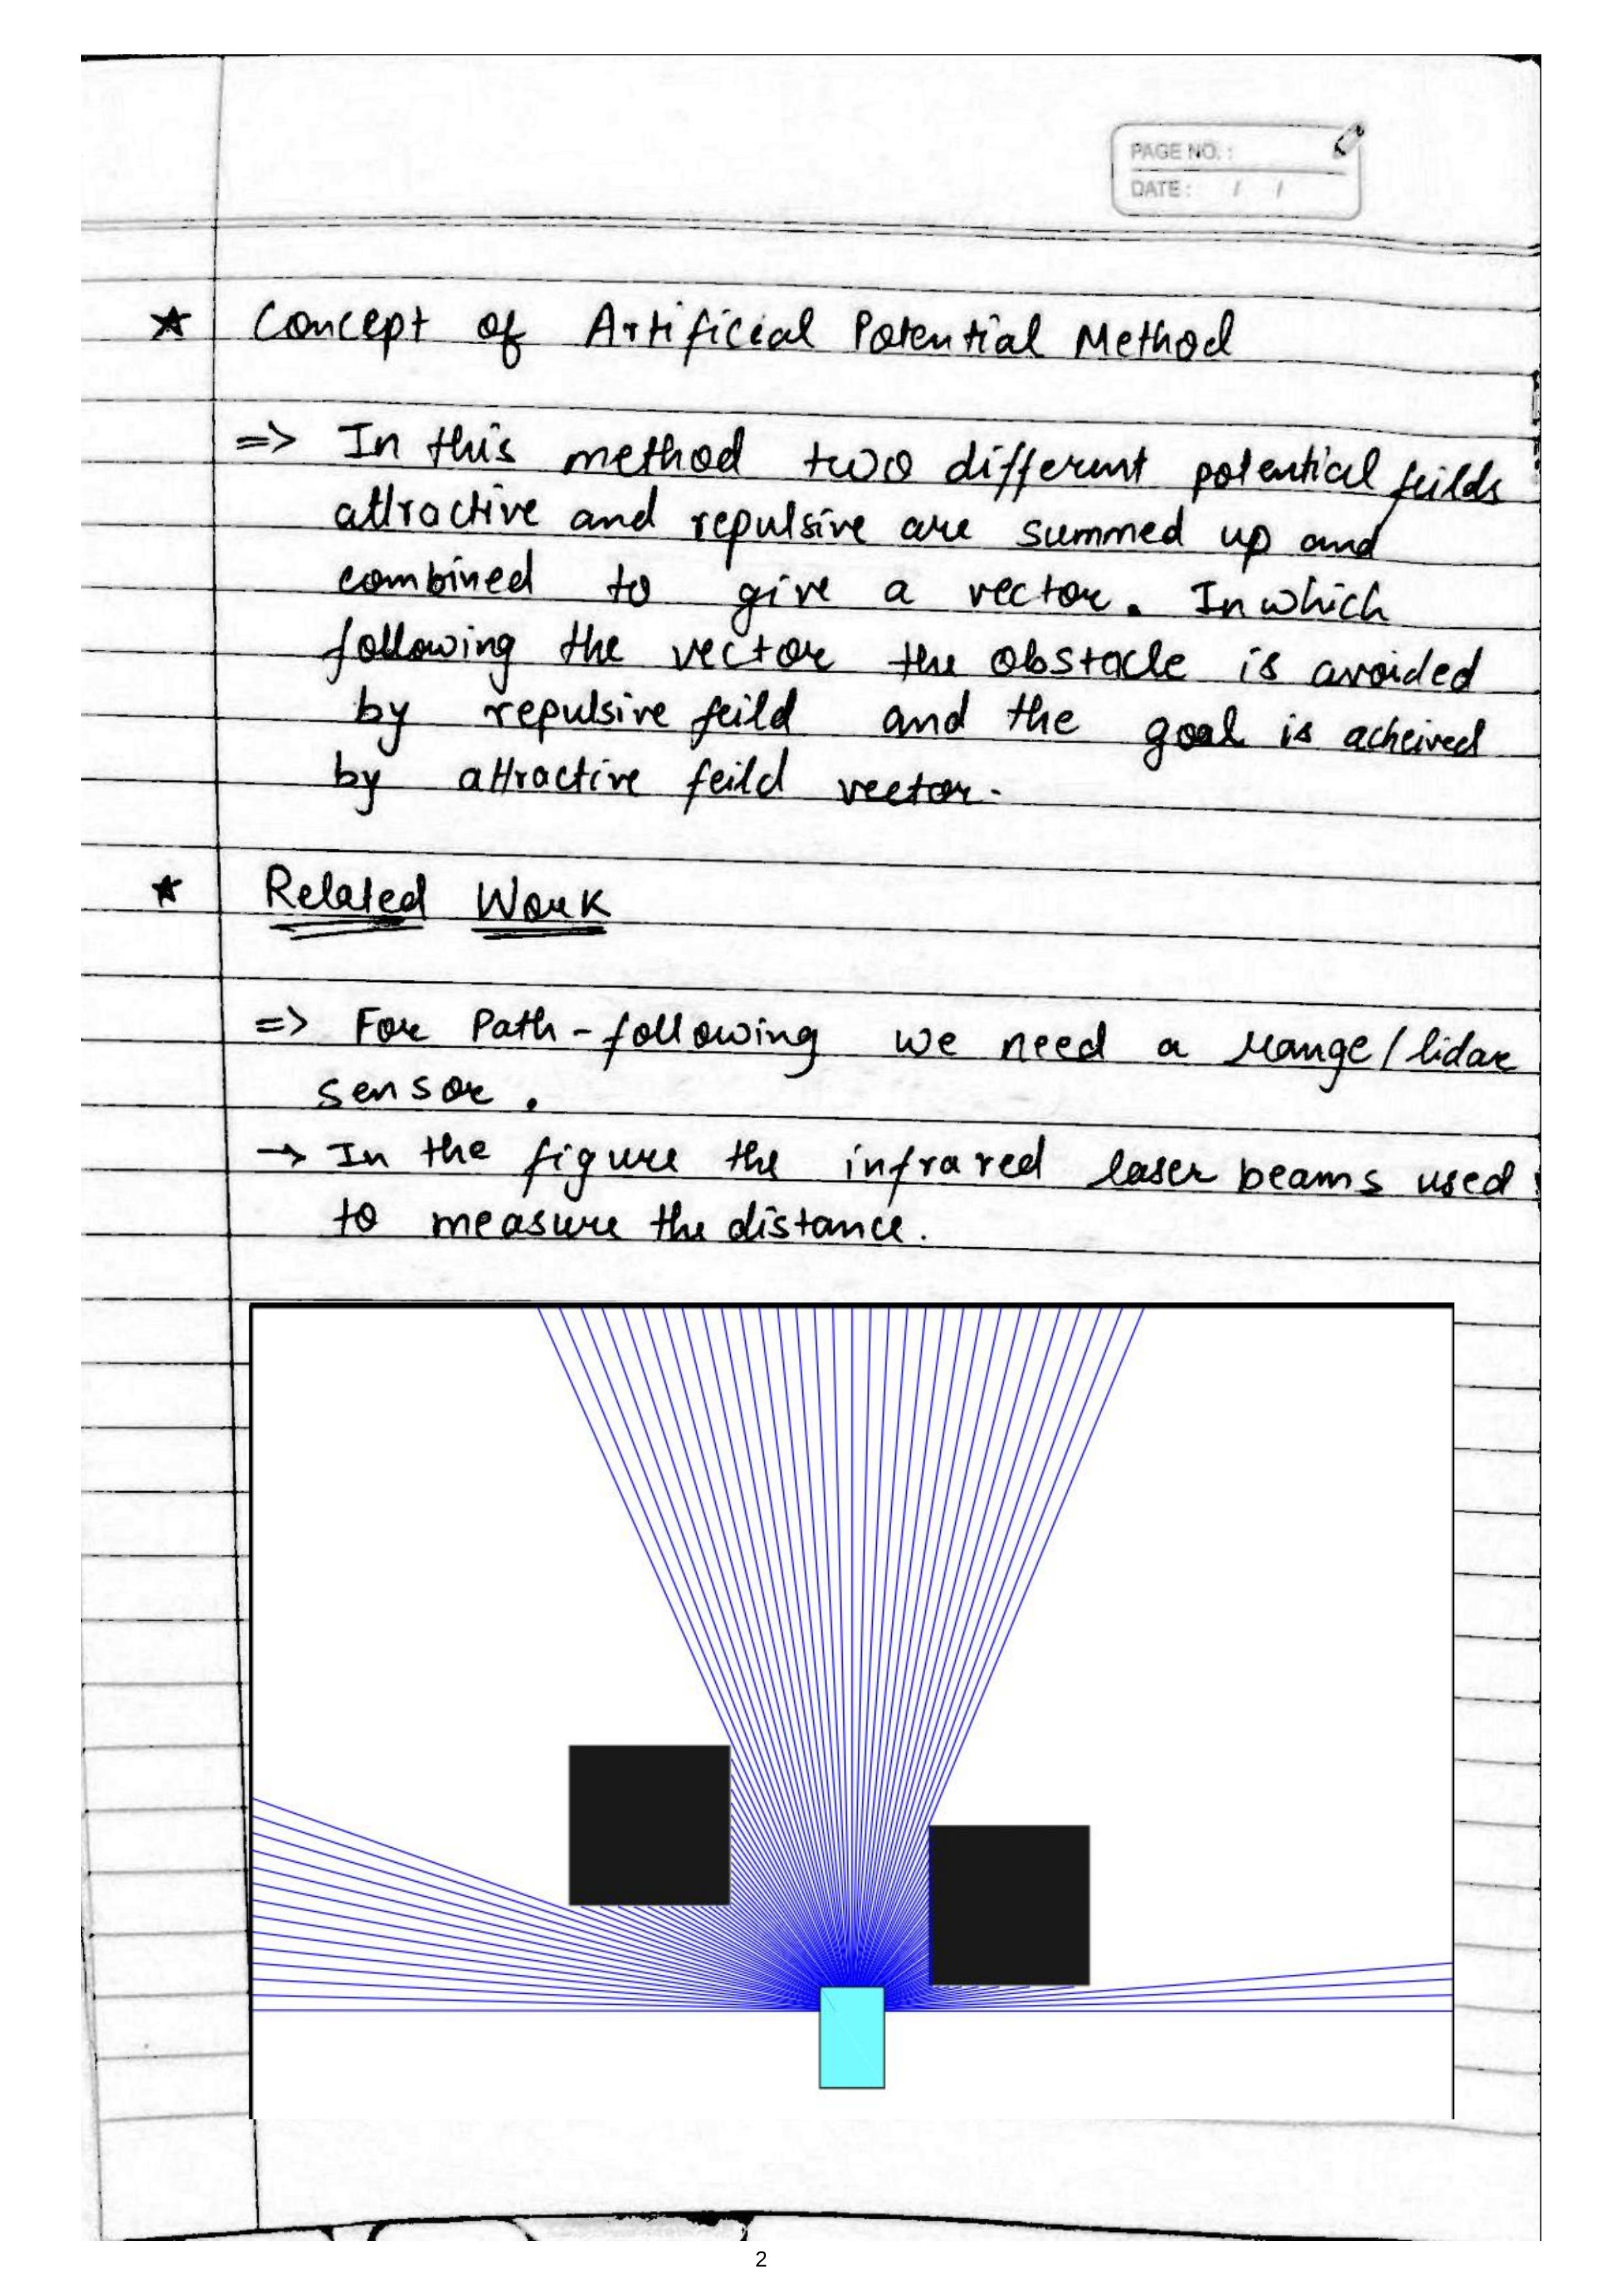 PAGE NO. :
DATE : / /
★ Concept of Artificial Potential Method
=> In this method two different potential feilds
attractive and repulsive are summed up and
combined to give a vector. In which
following the vector the obstacle is avoided
by repulsive feild and the goal is acheived
by attractive feild vector.
★ Related Work
=> For Path-following we need a range/lidar
sensor.
→ In the figure the infrared laser beams used
to measure the distance.
2